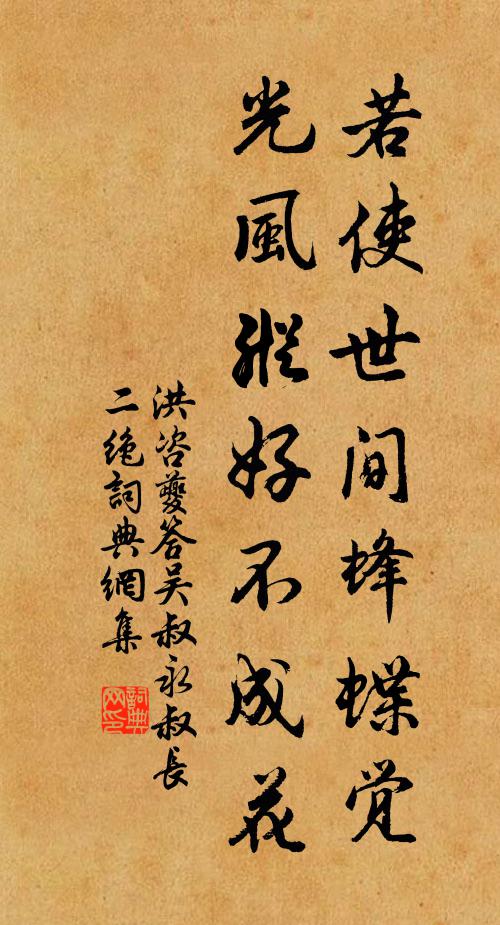 若使世间蜂蝶觉
光風縱好不成花
洪咨夔答吴叔永叔長
二绝詞典網集
詞典网印